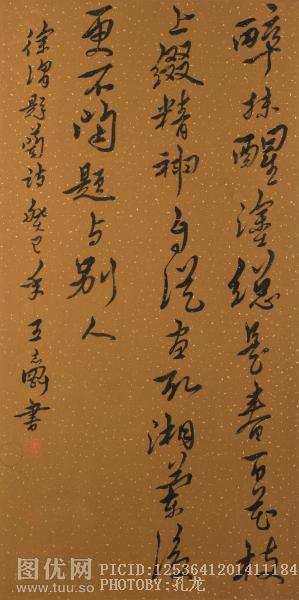 醉抹醒涂总是春百花枝
上缀精神自从画取湘兰后
更不闲题与别人
徐渭题兰诗癸巳年王志刚书
图优网
www.tuu.so
PICID:1253641201411184
PHOTOBY:孔龙